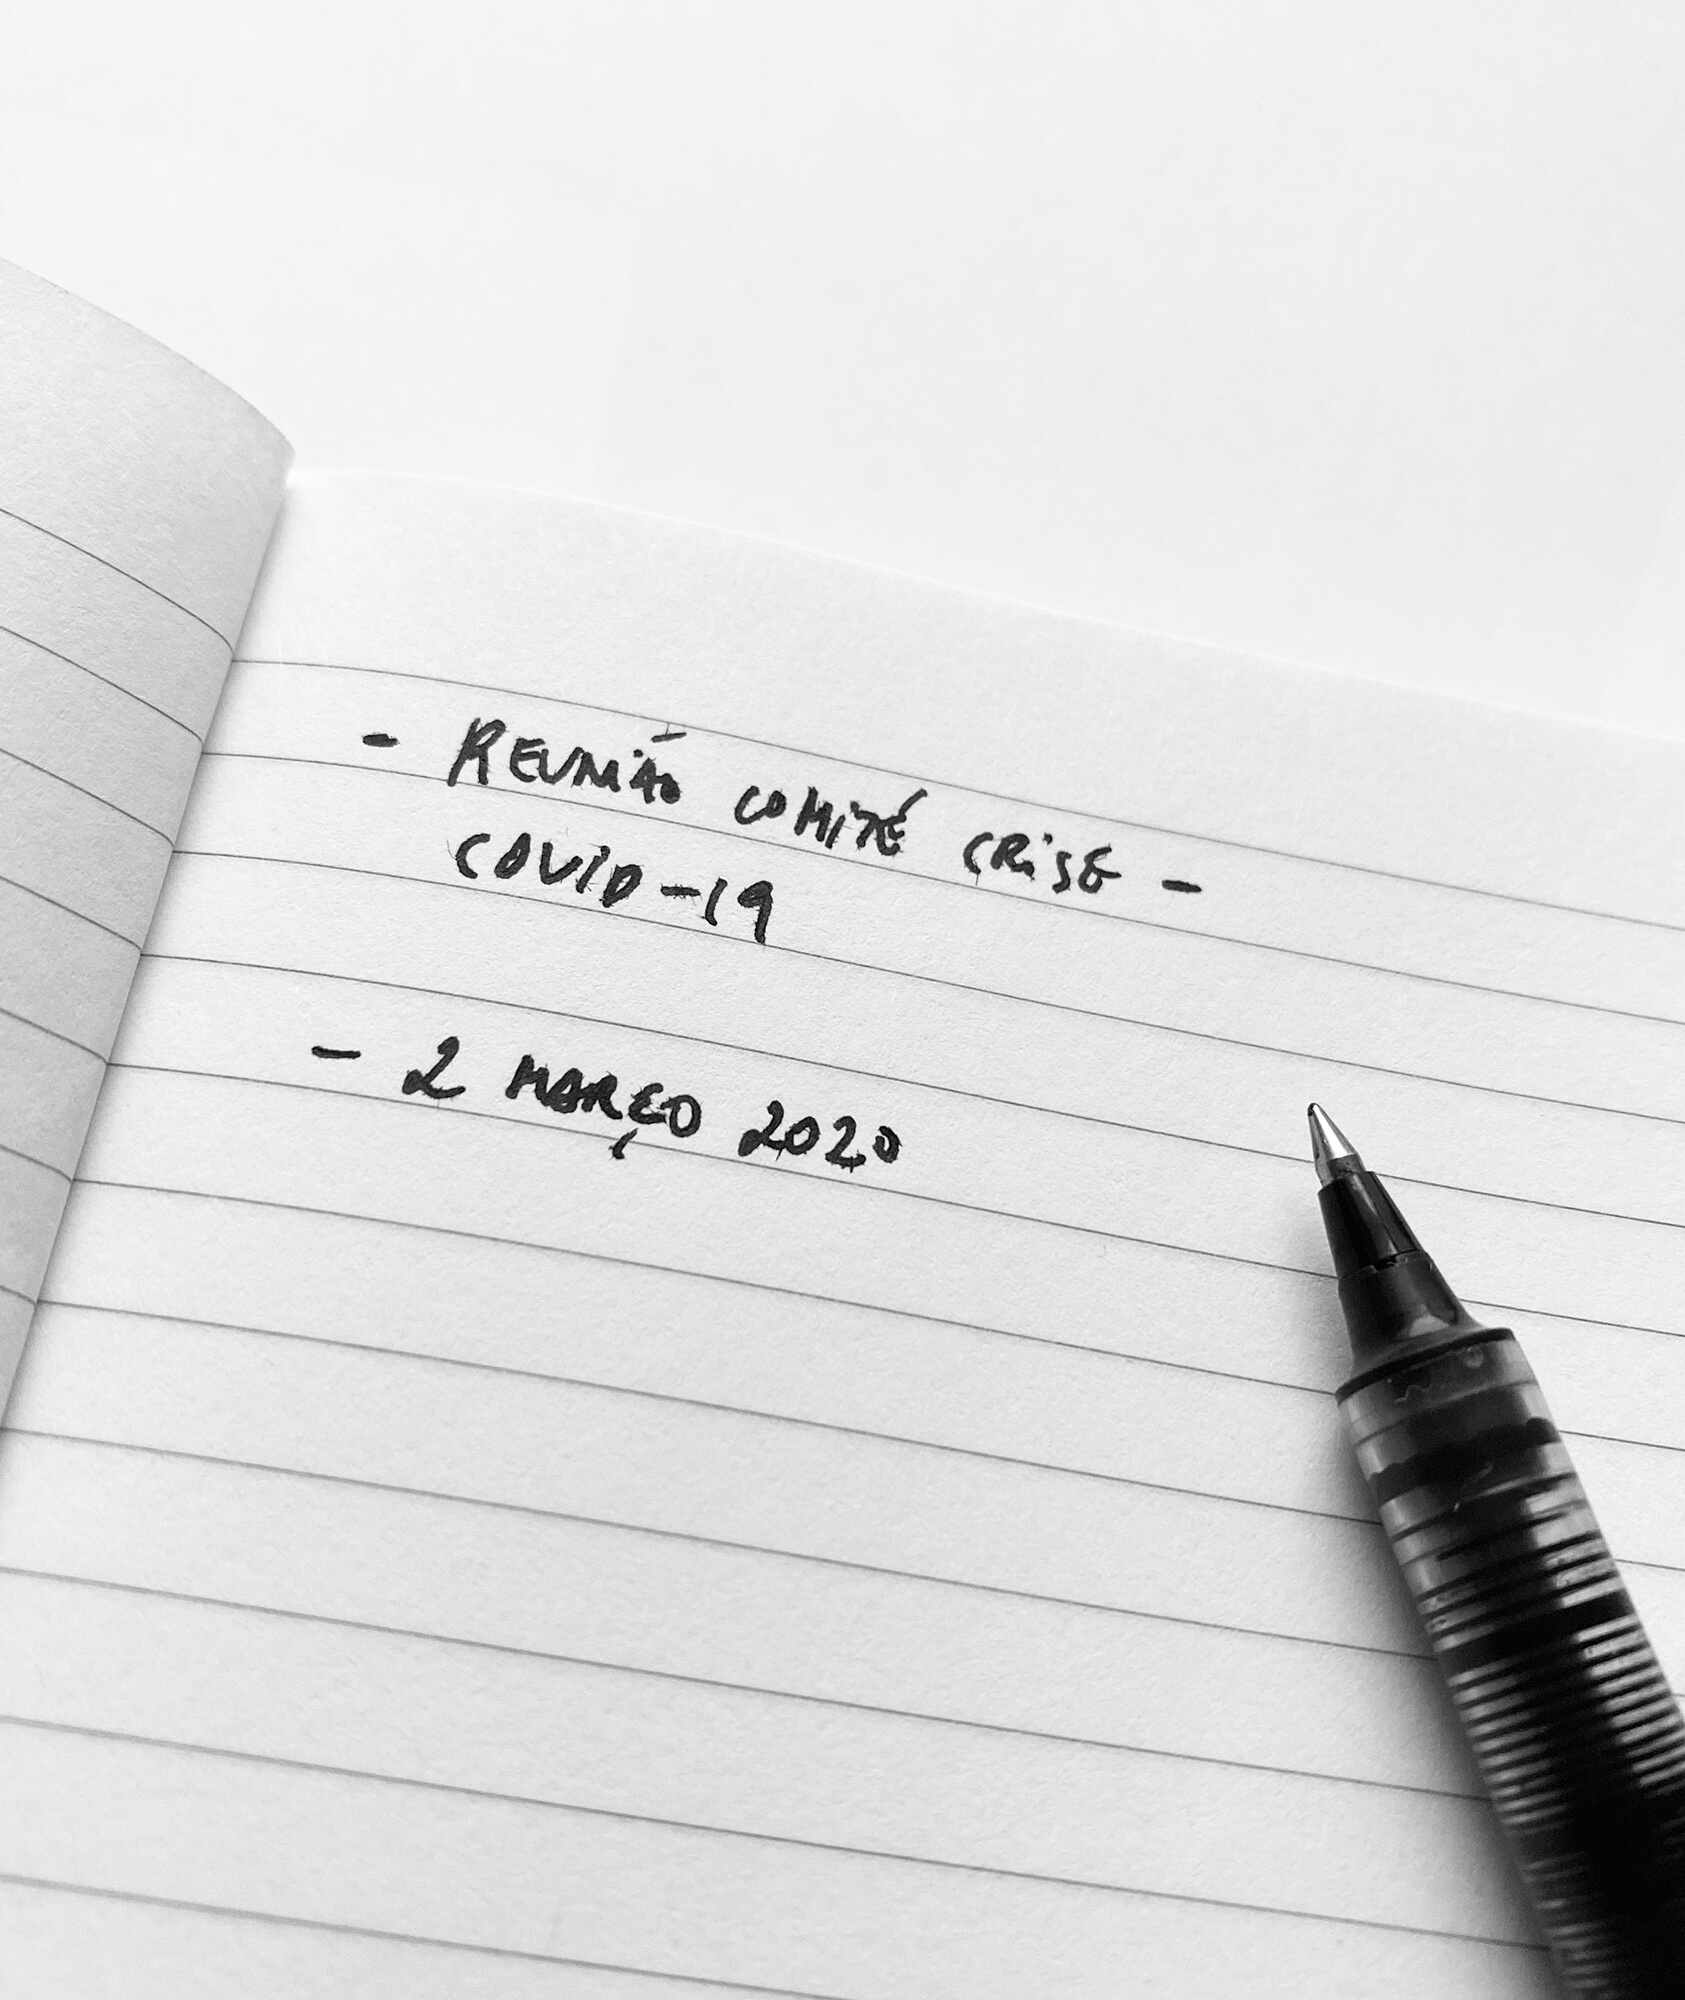 - REUNIÃO COMITÉ CRISE -
COVID-19
- 2 MARÇO 2020